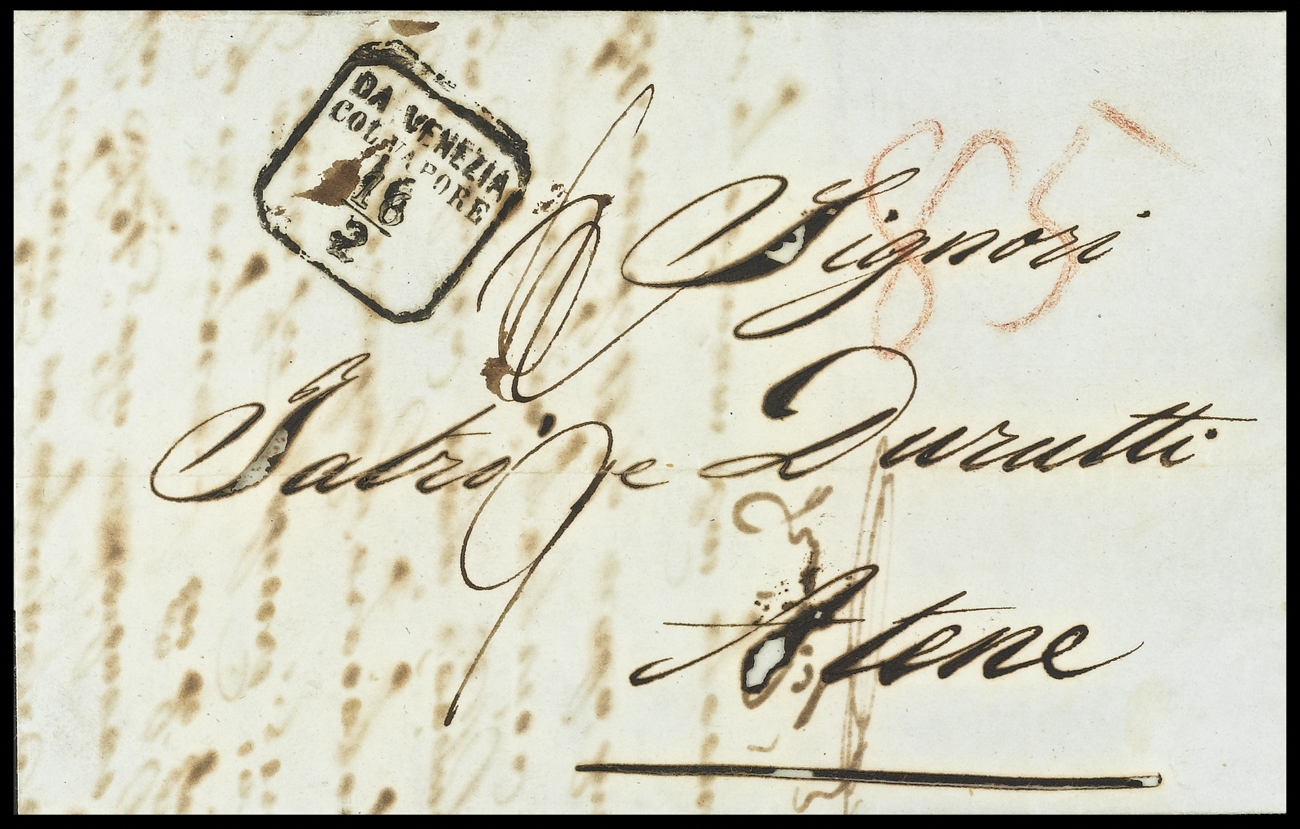 DA VENEZIA
COL VAPORE
18
2
Signori
Iatri e Durutti
Atene